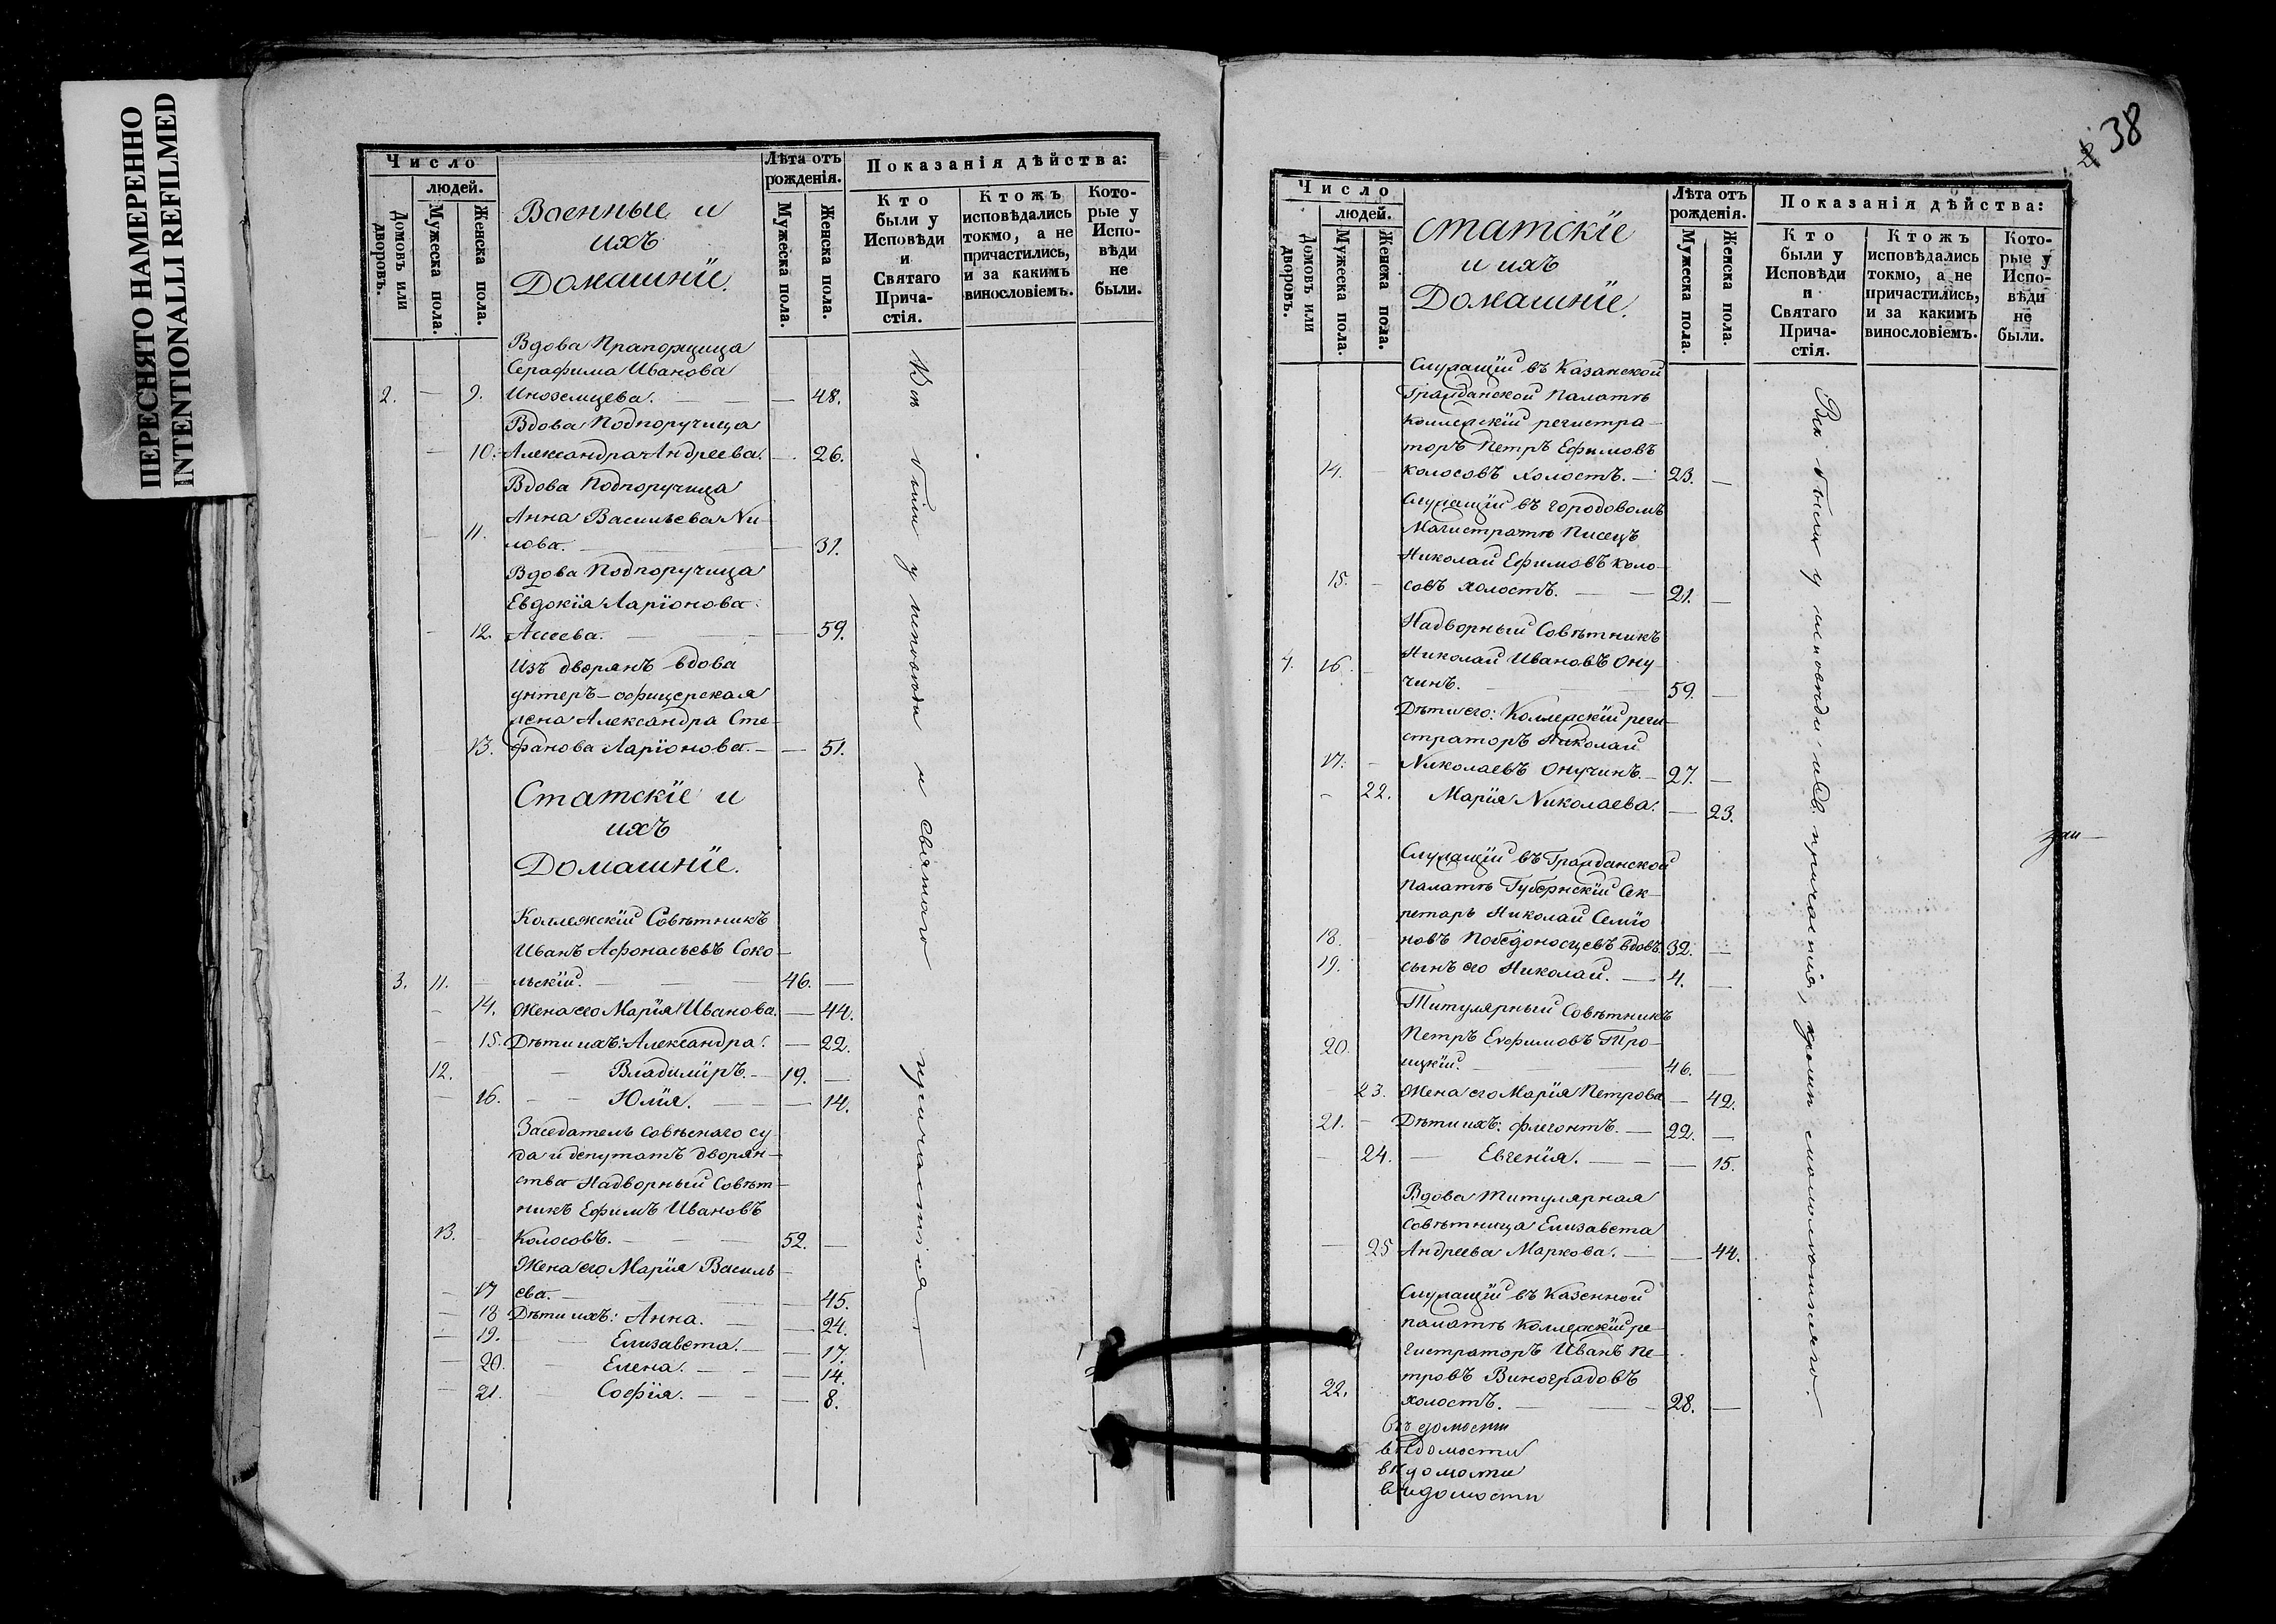 ПЕРЕСНЯТО НАМЕРЕННО
INTENTIONALLI REFILMED
Число
людей.
Домовъ или дворовъ.
Мужеска пола.
Женска пола.
Военные и
ихъ
Домашніе.
Лѣта отъ
рожденія.
Мужеска пола.
Женска пола.
Показанія дѣйства:
Кто
были у
Исповѣди
и
Святаго
Прича-
стія.
Ктожъ
исповѣдались
токмо, а не
причастились,
и за какимъ
винословіемъ.
Кото-
рые у
Испо-
вѣди
не
были.
Вдова Прапорщица
Серафима Иванова
2. — 9. Иноземцева. — — 48.
Вдова Подпоручица
— 10. Александра Андреева. — 26.
Вдова Подпоручица
Анна Васильева Ни-
— 11. лова. — — 31.
Вдова Подпоручица
Евдокія Ларіонова
— 12. Агѣева. — — 59.
Изъ дворянъ вдова
унтеръ-офицерская
жена Александра Сте-
13. фанова Ларіонова. — — 51.
Статскіе и
ихъ
Домашніе.
Коллежскій Совѣтникъ
Иванъ Афонасьевъ Соко-
3. 11. — льскій. — — 46. —
— 14. Жена его Марія Иванова. — 44.
— 15. Дѣти ихъ: Александра. — 22.
12. — Владиміръ. — 19. —
— 16. — — Юлія. — — 14.
Заседатель совѣснаго су-
да и депутатъ дворян-
ства Надворный Совѣт-
никъ Ефимъ Ивановъ
13. — Колосовъ. — — 52. —
Жена его Марія Василь-
— 17 ева. — — 45.
— 18 Дѣти ихъ: Анна. — — 24.
— 19. — Елизавета. — — 17.
— 20. — Елена. — — 14.
— 21. — Софія. — — 8.
Всѣ были у исповѣди и святаго причастія —
38
Число
людей.
Домовъ или дворовъ.
Мужеска пола.
Женска пола.
Статскіе
и ихъ
Домашніе.
Лѣта отъ
рожденія.
Мужеска пола.
Женска пола.
Показанія дѣйства:
Кто
были у
Исповѣди
и
Святаго
Прича-
стія.
Ктожъ
исповѣдались
токмо, а не
причастились,
и за какимъ
винословіемъ.
Кото-
рые у
Испо-
вѣди
не
были.
Служащій въ Казанской
Гражданской Палатѣ
Коллежскій регистра-
торъ Петръ Ефимовъ
14. — Колосовъ холостъ. — 23. —
Служащій въ городовомъ
Магистратѣ Писецъ
Николай Ефимовъ Коло-
15. — совъ холостъ. — — 21. —
Надворный Совѣтникъ
4. 16. — Николай Ивановъ Ону
чинъ. — 59. —
Дѣти его: Коллежскій реги-
страторъ Николай
17. — Николаевъ Онучинъ. — 27. —
— 22. Марія Николаева. — 23.
Служащій въ Гражданской
Палатѣ Губернскій Сек-
ретарь Николай Семіо
18. новъ Победоносцевъ вдовъ. 32. —
19. сынъ его Николай. — 4. —
Титулярный Совѣтникъ
20. Петръ Евфимовъ Тро-
ицкій. — 46. —
23. Жена его Марія Петрова — 42.
21. — Дѣти ихъ: Флегонтъ. — 22. —
— 24. — Евгенія. — — — 15.
Вдова Титулярная
Совѣтница Елизавета
— 25 Андреева Маркова. — — 44.
Служащій въ Казенной
палатѣ Коллежскій ре-
гистраторъ Иванъ Пе-
тровъ Виноградовъ
22. холостъ. — — 28. —
вѣдомости
вѣдомости
вѣдомости
Всѣ были у исповѣди и Св. причастія, кромѣ малолѣтняго.